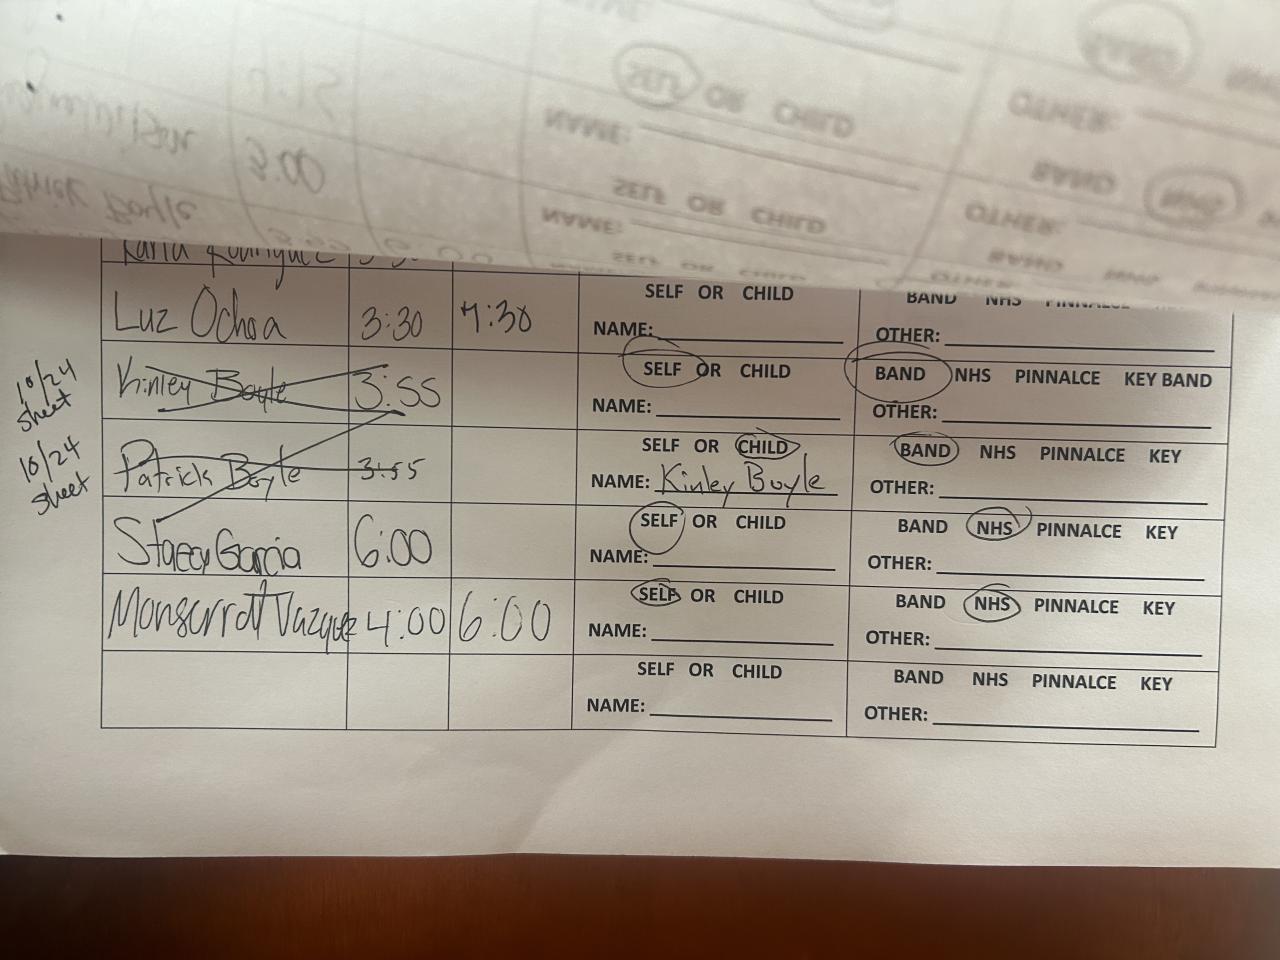 SELF OR CHILD
NAME:
SELF OR CHILD
NAME:
BAND
OTHER:
3:00
Patrick Boyle
Karla Rodriguez
SELF OR CHILD
BAND NHS
Luz Ochoa 3:30 7:30
NAME:
OTHER:
SELF OR CHILD
BAND NHS PINNALCE KEY BAND
10/24 sheet
Kinley Boyle 3:55
NAME:
OTHER:
SELF OR CHILD
BAND NHS PINNALCE KEY
10/24 sheet
Patrick Boyle 3:55
NAME: Kinley Boyle
OTHER:
SELF OR CHILD
BAND NHS PINNALCE KEY
Stacey Garcia 6:00
NAME:
OTHER:
SELF OR CHILD
BAND NHS PINNALCE KEY
Monserrat Vazquez 4:00 6:00
NAME:
OTHER:
SELF OR CHILD
BAND NHS PINNALCE KEY
NAME:
OTHER: